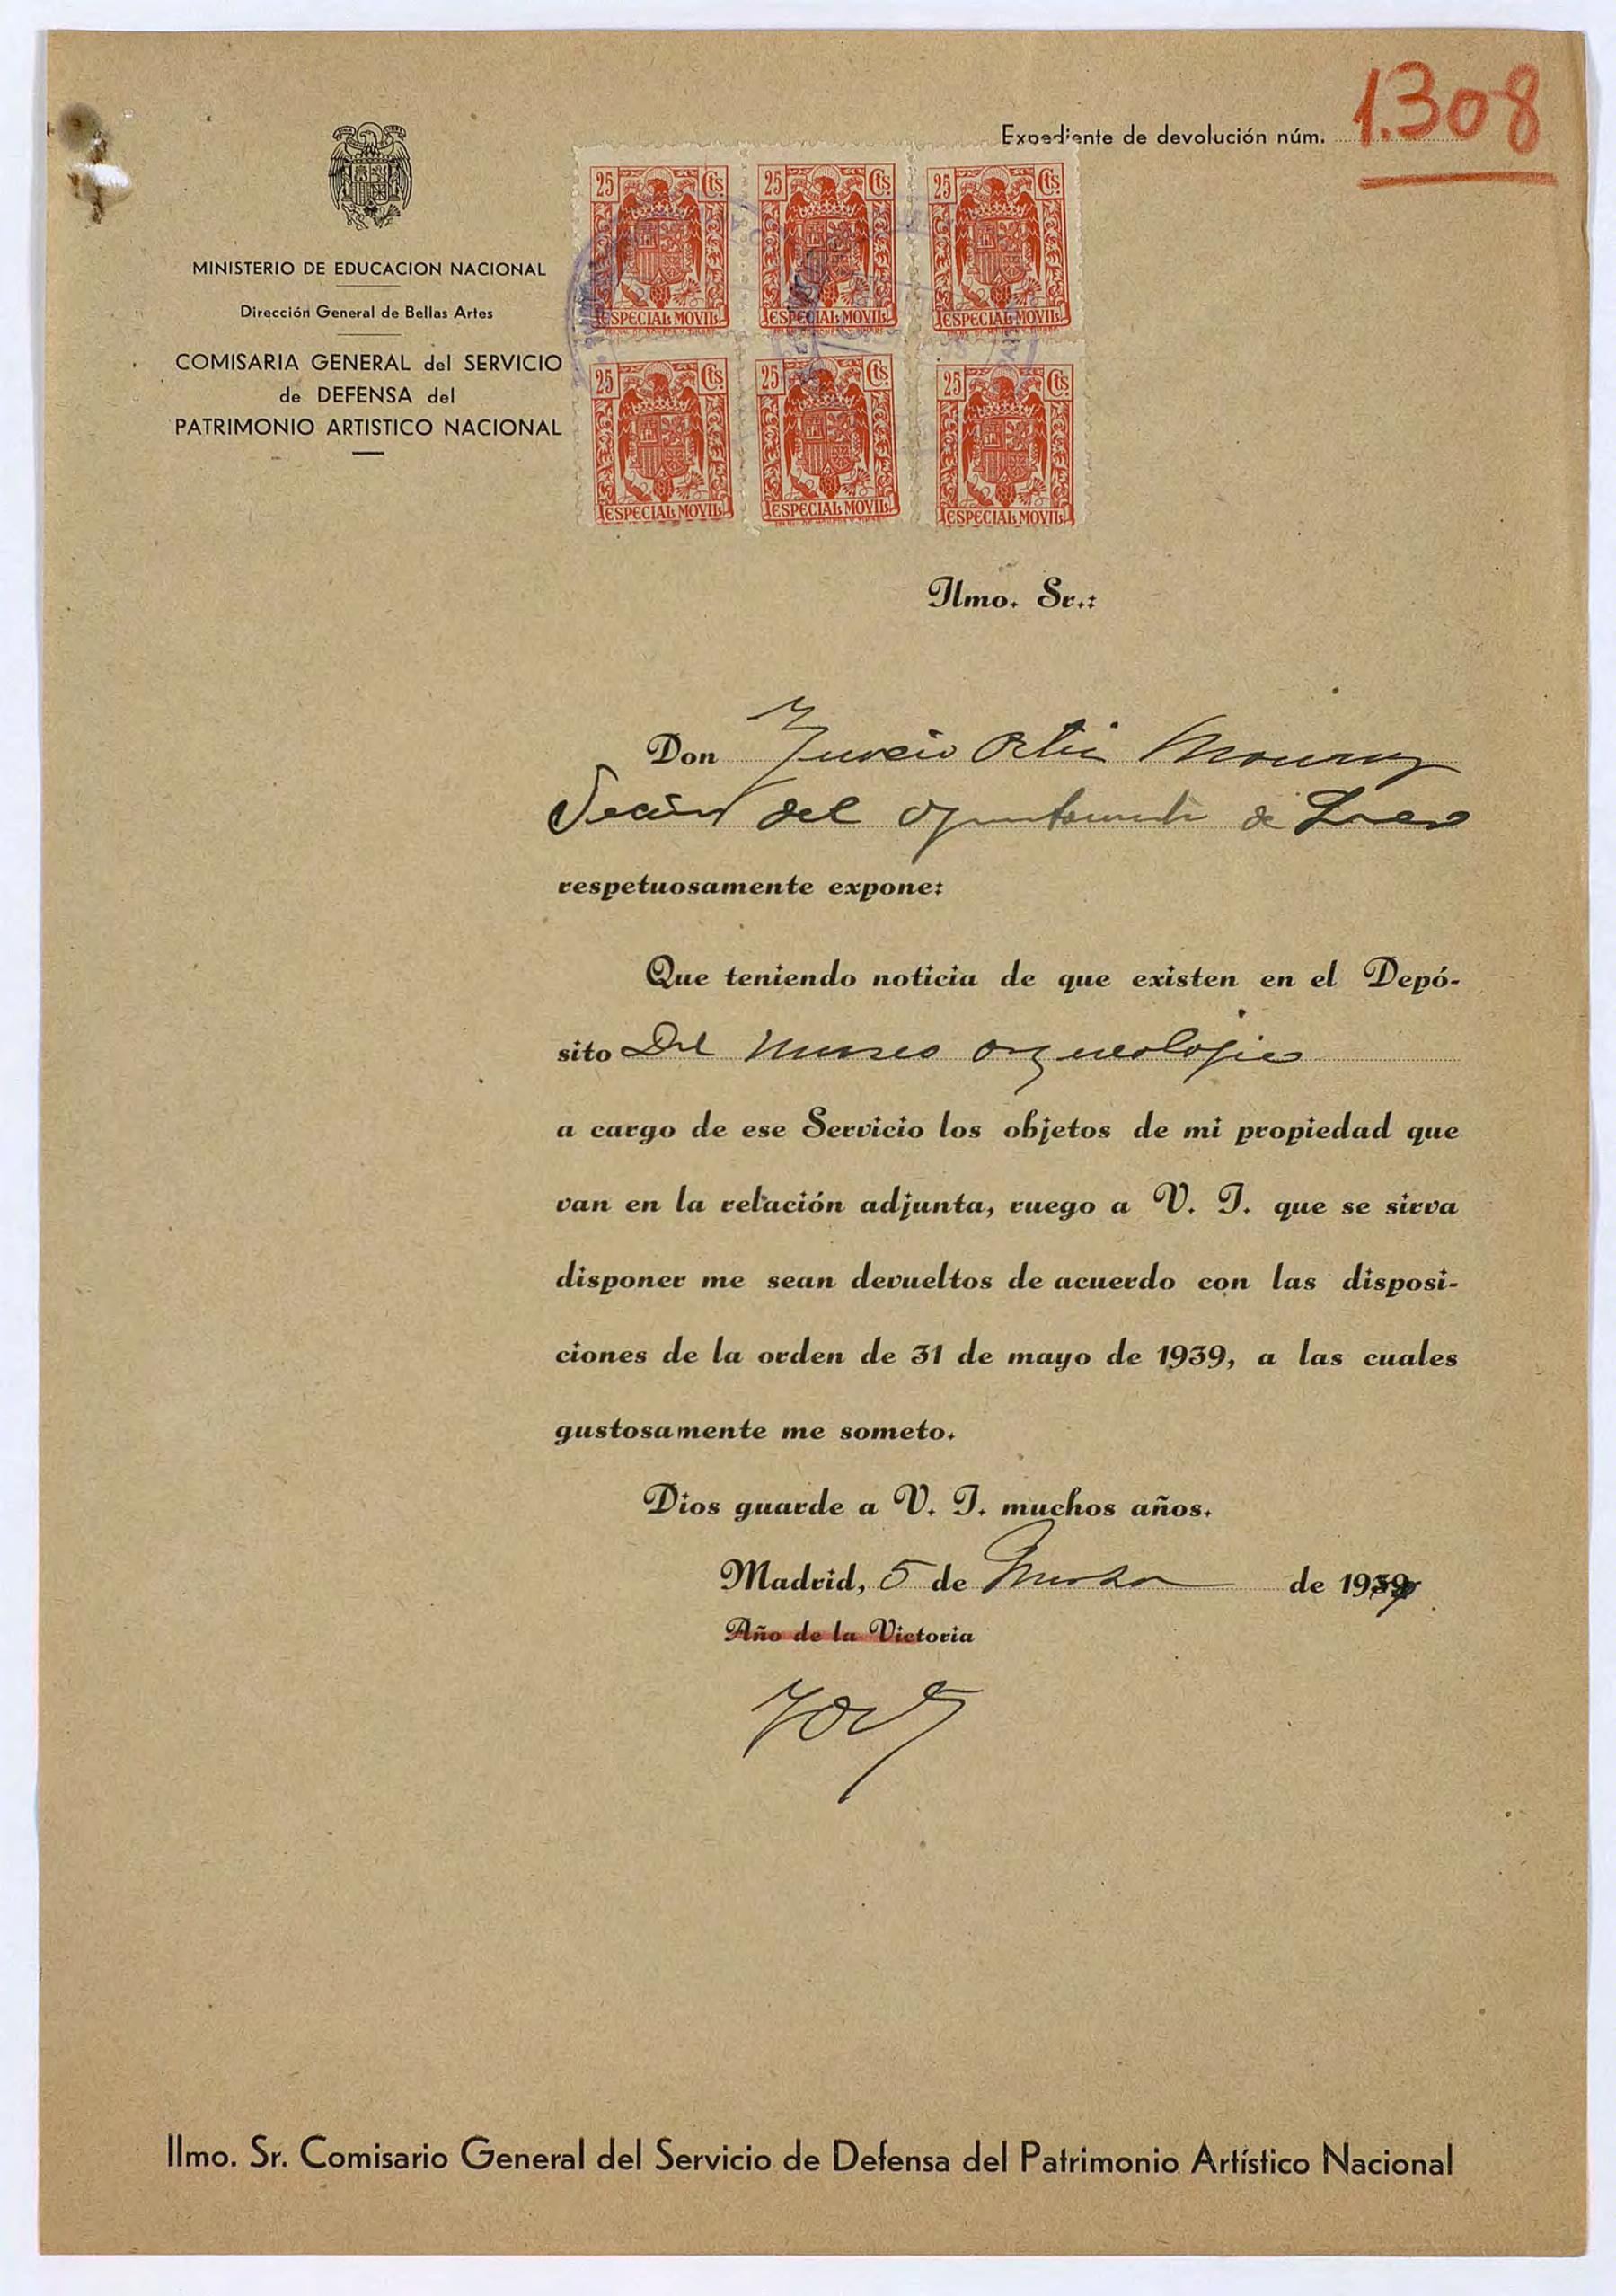 1.308
Expediente de devolución núm.
MINISTERIO DE EDUCACION NACIONAL
Dirección General de Bellas Artes
COMISARIA GENERAL del SERVICIO
de DEFENSA del
PATRIMONIO ARTISTICO NACIONAL
25 Cts. 25 Cts. 25 Cts.
ESPECIAL MOVIL ESPECIAL MOVIL ESPECIAL MOVIL
25 Cts. 25 Cts. 25 Cts.
ESPECIAL MOVIL ESPECIAL MOVIL ESPECIAL MOVIL
Ilmo. Sr.:
Don
del de
respetuosamente expone:
Que teniendo noticia de que existen en el Depó-
sito Del Museo arqueologico
a cargo de ese Servicio los objetos de mi propiedad que
van en la relación adjunta, ruego a V. I. que se sirva
disponer me sean devueltos de acuerdo con las disposi-
ciones de la orden de 31 de mayo de 1939, a las cuales
gustosamente me someto.
Dios guarde a V. I. muchos años.
Madrid, 5 de Marzo de 19
Año de la Victoria
Ilmo. Sr. Comisario General del Servicio de Defensa del Patrimonio Artístico Nacional